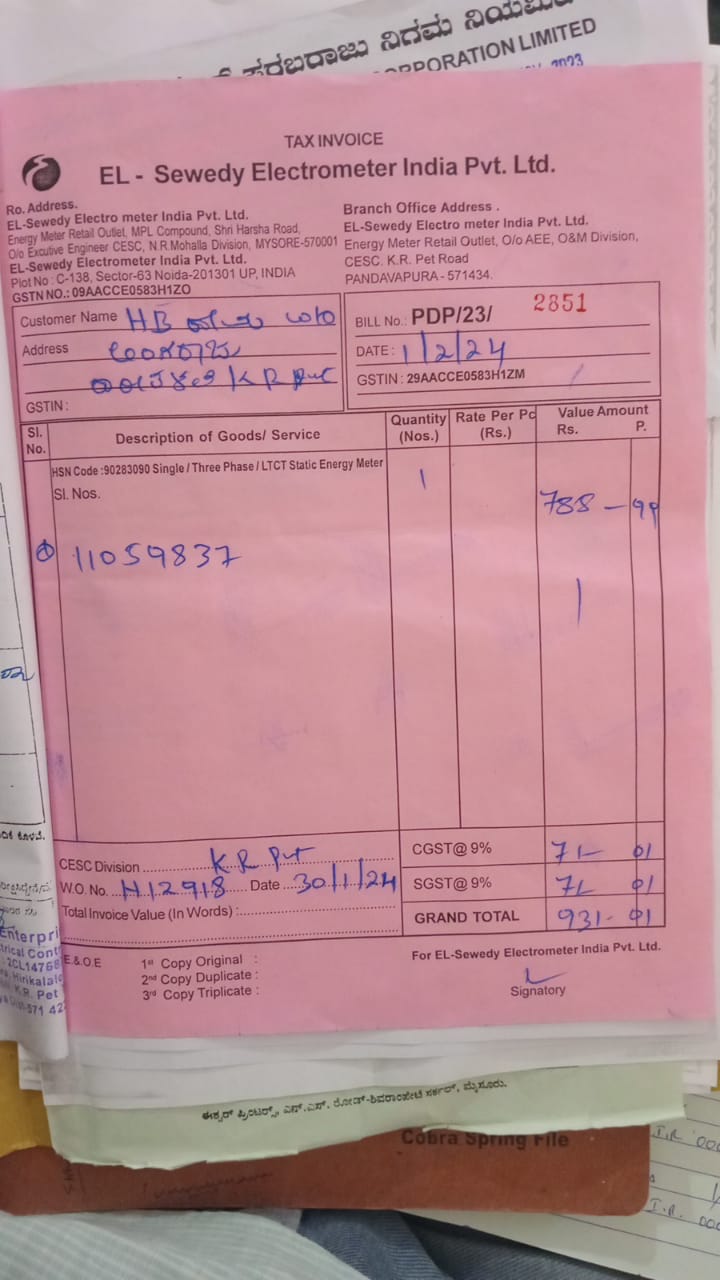 ಸರಬರಾಜು ನಿಗಮ ನಿಯಮಿತ
CORPORATION LIMITED
2023
TAX INVOICE
EL - Sewedy Electrometer India Pvt. Ltd.
Ro. Address.
EL-Sewedy Electro meter India Pvt. Ltd.
Energy Meter Retail Outlet, MPL Compound, Shri Harsha Road,
O/o Excutive Engineer CESC, N.R.Mohalla Division, MYSORE-570001
EL-Sewedy Electrometer India Pvt. Ltd.
Plot No : C-138, Sector-63 Noida-201301 UP, INDIA
GSTN NO.: 09AACCE0583H1ZO
Branch Office Address .
EL-Sewedy Electro meter India Pvt. Ltd.
Energy Meter Retail Outlet, O/o AEE, O&M Division,
CESC. K.R. Pet Road
PANDAVAPURA - 571434.
Customer Name HB
Address
K R Pet
GSTIN :
BILL No.: PDP/23/ 2851
DATE : 1/2/24
GSTIN : 29AACCE0583H1ZM
Sl. No. Description of Goods/ Service Quantity (Nos.) Rate Per Pc (Rs.) Value Amount Rs. P.
HSN Code :90283090 Single / Three Phase / LTCT Static Energy Meter 1
Sl. Nos. 788 - 99
① 11059837
CESC Division K R Pet
W.O. No. H12918 Date 30/1/24
Total Invoice Value (In Words) :
CGST@ 9% 71- 01
SGST@ 9% 71 01
GRAND TOTAL 931- 01
E.& O.E
1st Copy Original :
2nd Copy Duplicate :
3rd Copy Triplicate :
For EL-Sewedy Electrometer India Pvt. Ltd.
Signatory
Enterpri
trical Cont
K.R. Pet
ಈಶ್ವರ್ ಪ್ರಿಂಟರ್ಸ್, ಎನ್.ಎಸ್. ರೋಡ್-ಶಿವರಾಂಪೇಟೆ ಸರ್ಕಲ್, ಮೈಸೂರು.
Cobra Spring File